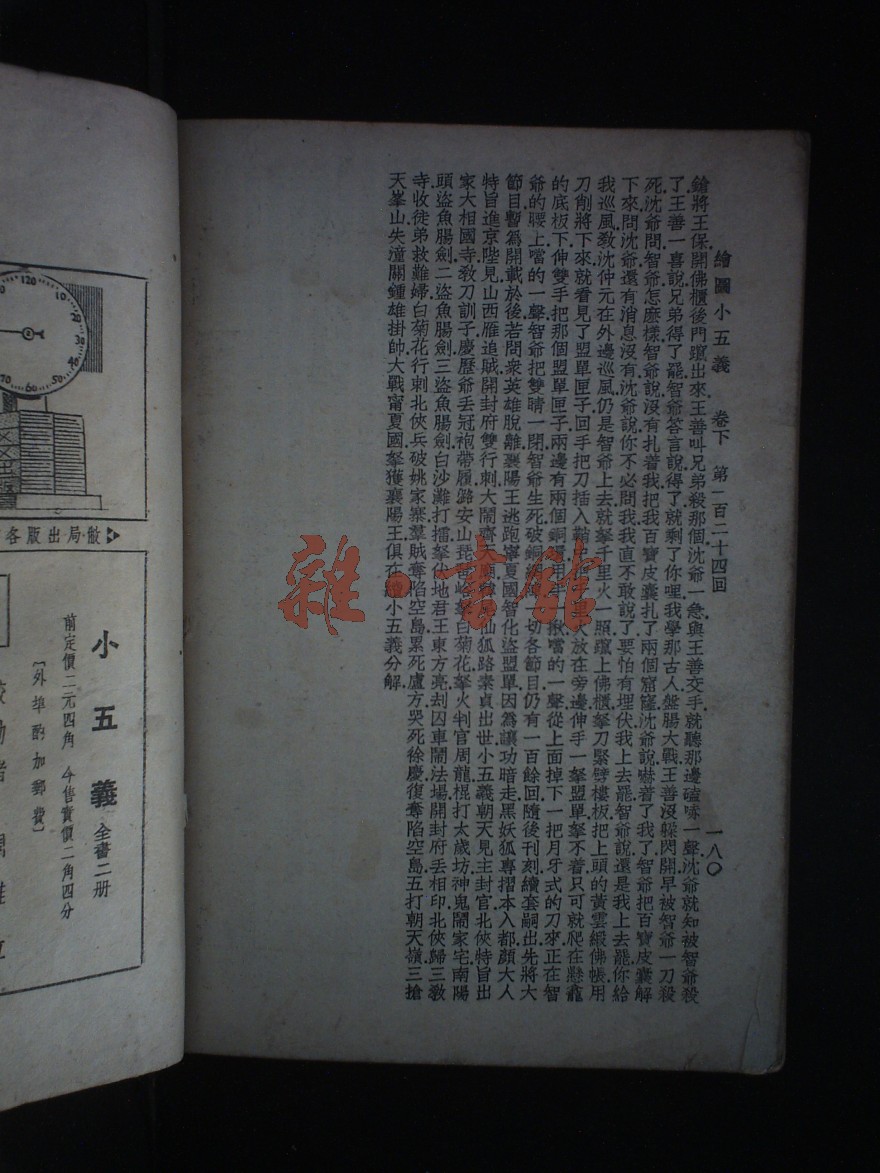 繪圖小五義　卷下　第一百二十四回　一八〇
鎗將王保開佛櫃後門躥出來王善叫兄弟殺那個沈爺一急與王善交手就聽那邊磕哧一聲沈爺就知被智爺殺
了王善一喜說兄弟得了罷智爺答言說得了就剩了你哩我學那古人盤腸大戰王善沒躲閃開早被智爺一刀殺
死沈爺問智爺怎麼樣智爺說沒有扎着我把我百寶皮囊扎了兩個窟窿沈爺說嚇着了我了智爺把百寶皮囊解
下來問沈爺還有消息沒有沈爺說你不必問我我直不敢說了要怕有埋伏我上去罷智爺說還是我上去罷你給
我巡風教沈仲元在外邊巡風仍是智爺上去就拏千里火一照躥上佛櫃拏刀緊劈樓板把上頭的黃雲緞佛帳用
刀削將下來就看見了盟單匣子回手把刀插入鞘千里火放在旁邊伸手一拏盟單拏不着只可就爬在懸龕
的底板下伸雙手把那個盟單匣子兩邊有兩個銅環用手一揪噹的一聲從上面掉下一把月牙式的刀來正在智
爺的腰上噹的一聲智爺把雙睛一閉智爺生死破銅網陣一切各節目仍有一百餘回隨後刊刻續套嗣出先將大
節目暫爲開載於後若問衆英雄脫離襄陽王逃跑寧夏國智化盜盟單因爲讓功暗走黑妖狐專摺本入都顏大人
特旨進京陛見山西雁追賊開封府雙行刺大鬧齊天廟韓原仙狐路素貞出世小五義朝天見主封官北俠特旨出
家大相國寺教刀訓子慶歷爺丟冠袍帶履潞安山琵琶峪拏白菊花拏火判官周龍棍打太歲坊神鬼鬧家宅南陽
頭盜魚腸劍二盜魚腸劍三盜魚腸劍白沙灘打擂拏伏地君王東方亮刦囚車鬧法場開封府丟相印北俠歸三教
寺收徒弟救難婦白菊花行刺北俠兵破姚家寨羣賊奪陷空島累死盧方哭死徐慶復奪陷空島五打朝天嶺三搶
天峯山失潼關鍾雄掛帥大戰甯夏國拏獲襄陽王俱在續小五義分解
雜·書館
120
10
20
30
50
60
70
敝·局·出·版·各
小五義　全書二册
前定價二元四角　今售實價二角四分
〔外埠酌加郵費〕